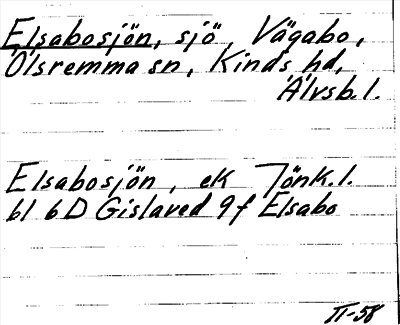 Elsabosjön, sjö, Vägabo,
Ölsremma sn, Kinds hd,
Älvsb. l.
Elsabosjön, ek Jönk. l.
bl 6D Gislaved 9f Elsabo
TI-58